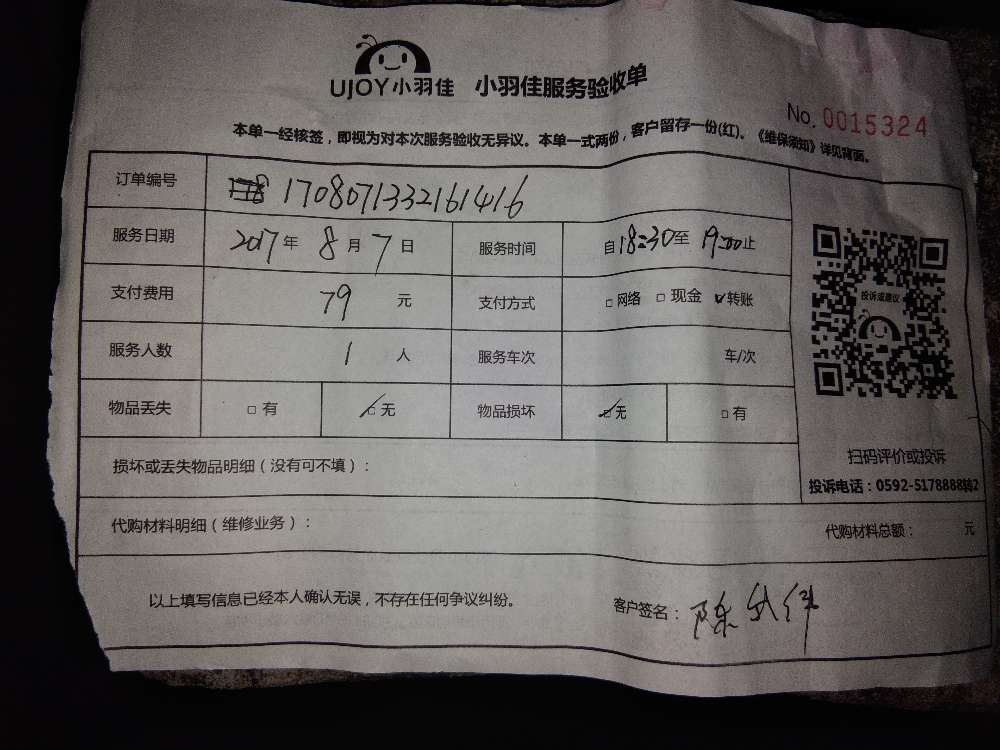 UJOY小羽佳 小羽佳服务验收单
No. 0015324
本单一经核签，即视为对本次服务验收无异议。本单一式两份，客户留存一份(红)。《维保须知》详见背面。
订单编号 1708071332161416
服务日期 2017年 8月 7日 服务时间 自18:30至 19:00止
支付费用 79 元 支付方式 □网络 □现金 ☑转账
服务人数 1 人 服务车次 车/次
投诉或建议
物品丢失 □有 ☑无 物品损坏 ☑无 □有
扫码评价或投诉
损坏或丢失物品明细（没有可不填）：
投诉电话：0592-5178888转2
代购材料明细（维修业务）： 代购材料总额： 元
以上填写信息已经本人确认无误，不存在任何争议纠纷。 客户签名：陈